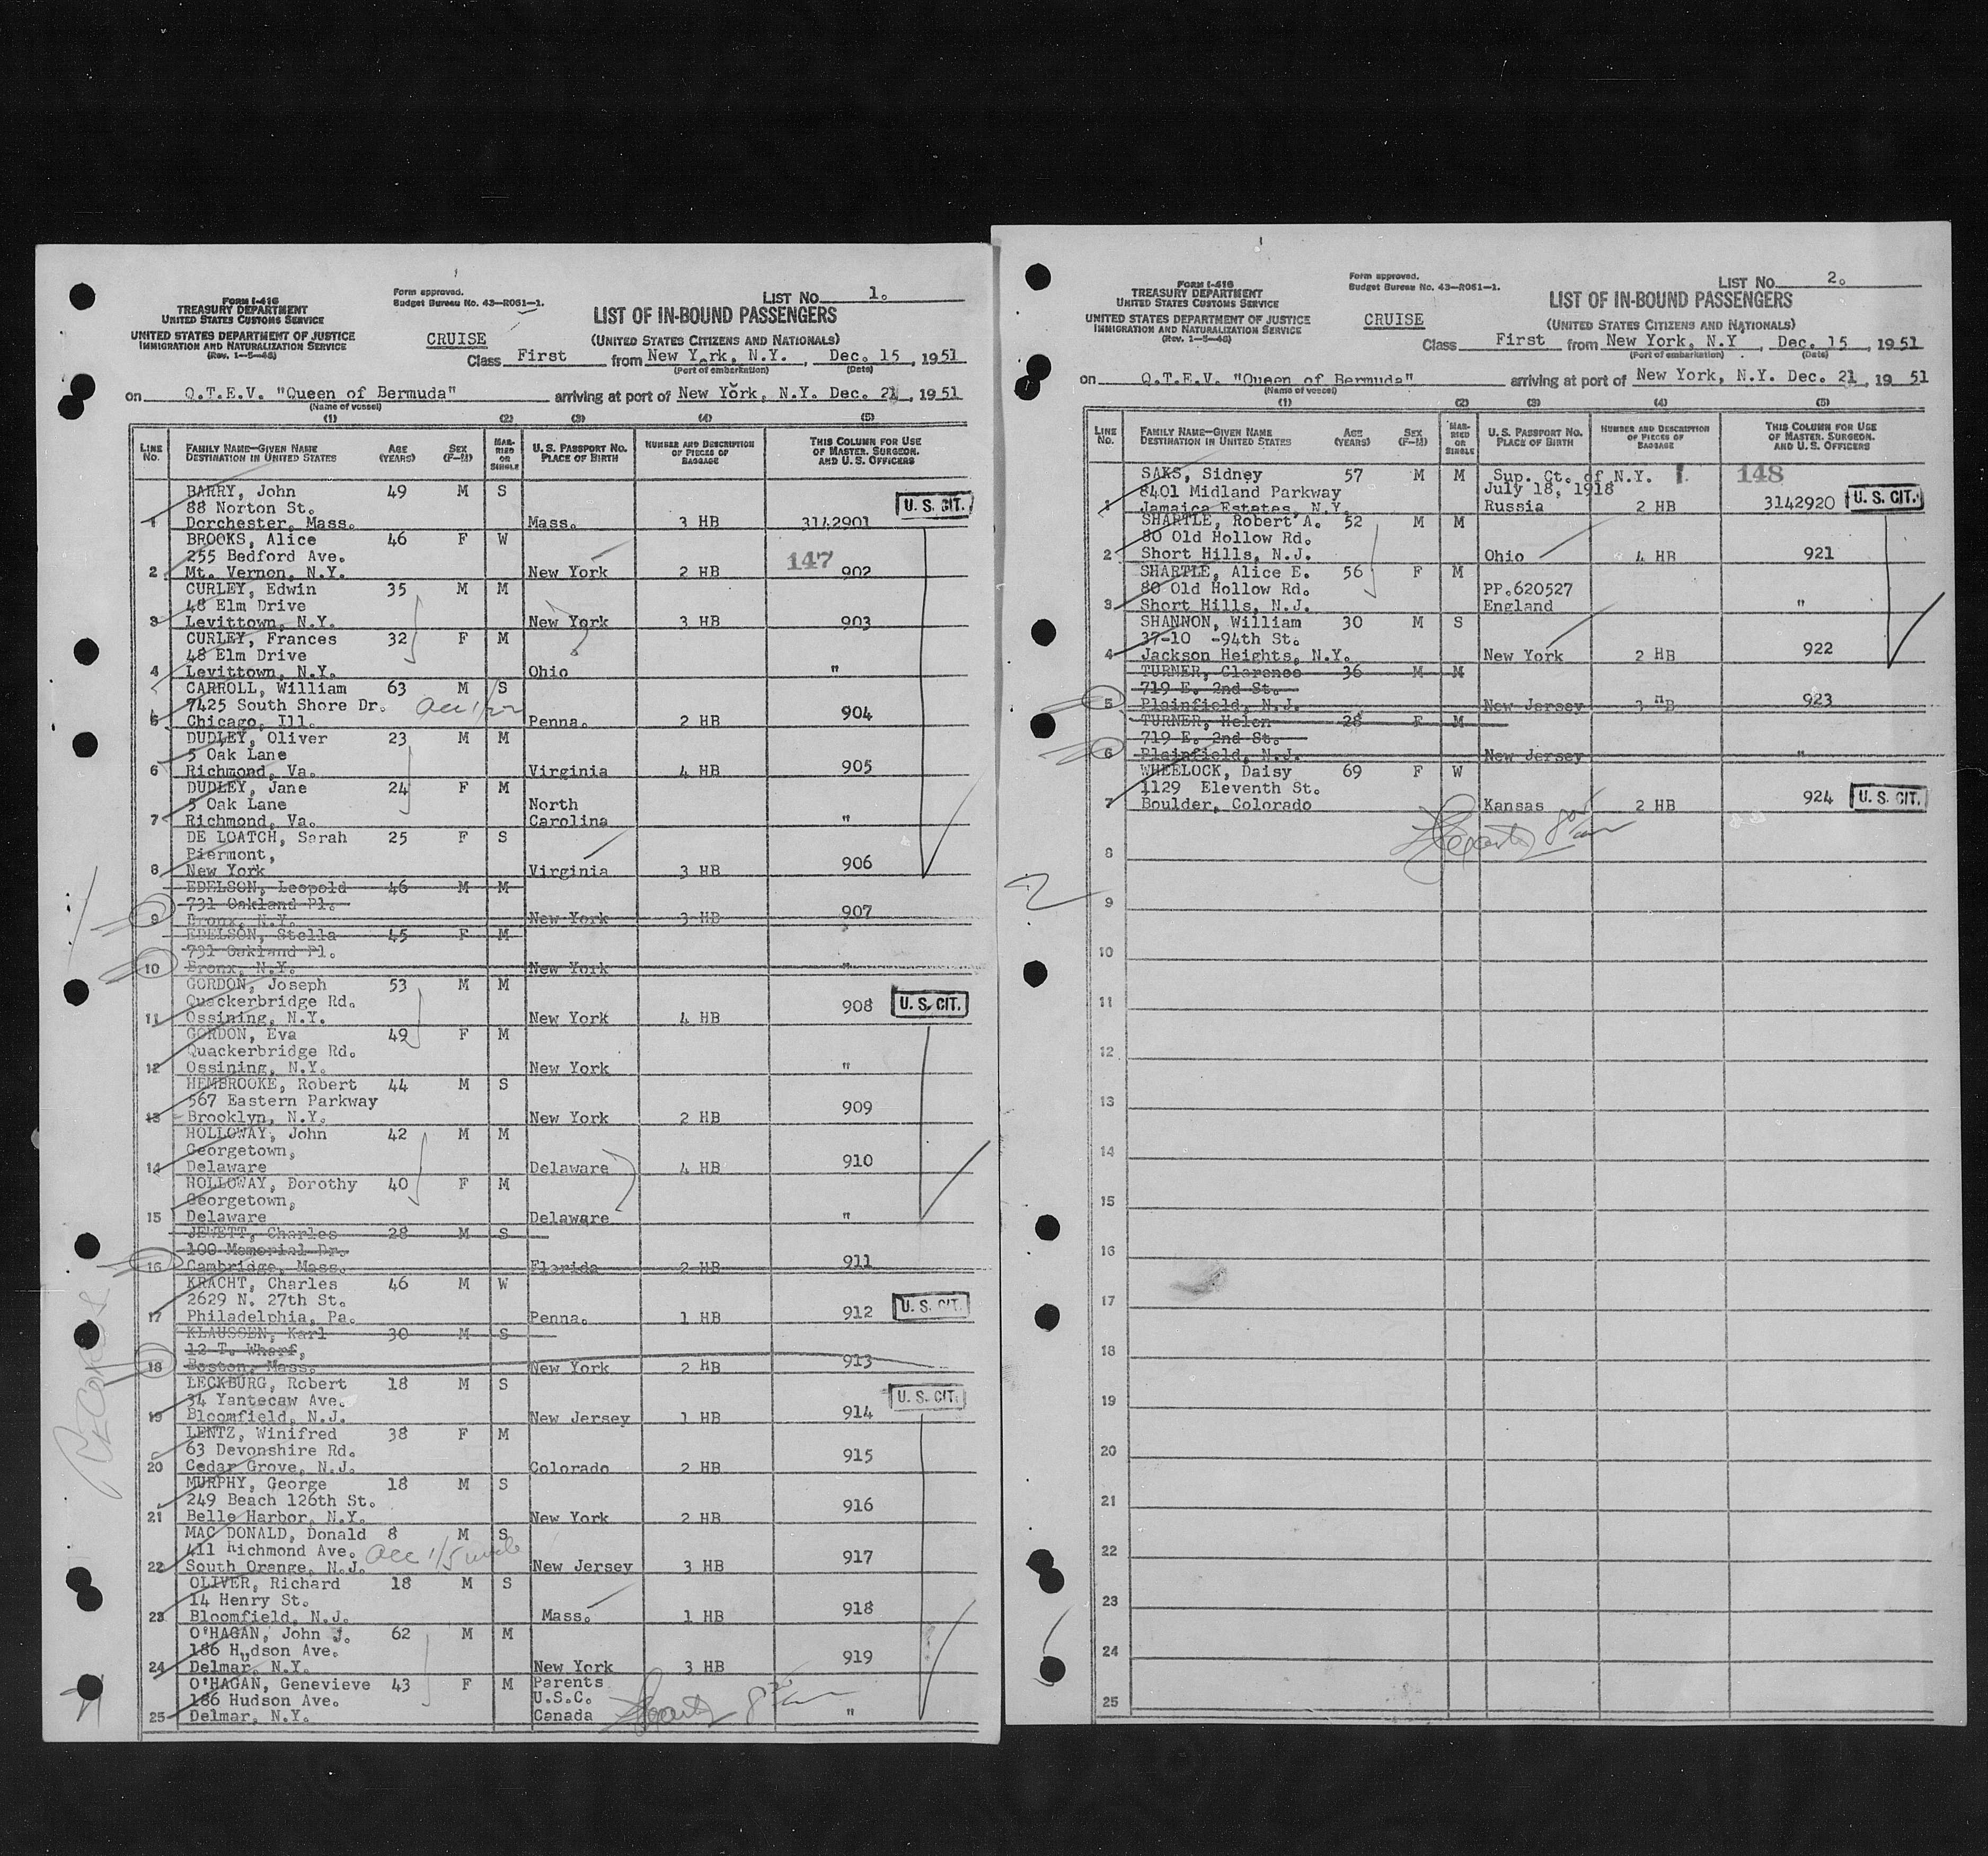 FORM I-416
TREASURY DEPARTMENT
UNITED STATES CUSTOMS SERVICE
UNITED STATES DEPARTMENT OF JUSTICE
IMMIGRATION AND NATURALIZATION SERVICE
(Rev. 1-5-48)
Form approved.
Budget Bureau No. 43-R061-1.
LIST No. 1.
LIST OF IN-BOUND PASSENGERS
(UNITED STATES CITIZENS AND NATIONALS)
CRUISE
Class First from New York, N.Y. Dec. 15, 1951
(Port of embarkation) (Date)
on Q.T.E.V. "Queen of Bermuda" arriving at port of New York, N.Y. Dec. 21, 1951
(Name of vessel)
(1) (2) (3) (4) (5)
LINE No. FAMILY NAME—GIVEN NAME DESTINATION IN UNITED STATES AGE (YEARS) SEX (F-M) MARRIED OR SINGLE U.S. PASSPORT No. PLACE OF BIRTH NUMBER AND DESCRIPTION OF PIECES OF BAGGAGE THIS COLUMN FOR USE OF MASTER, SURGEON, AND U.S. OFFICERS
BARRY, John 49 M S U. S. CIT.
88 Norton St.
1 Dorchester, Mass. Mass. 3 HB 3142901
BROOKS, Alice 46 F W
255 Bedford Ave. 147
2 Mt. Vernon, N.Y. New York 2 HB 902
CURLEY, Edwin 35 M M
48 Elm Drive
3 Levittown, N.Y. New York 3 HB 903
CURLEY, Frances 32 F M
48 Elm Drive
4 Levittown, N.Y. Ohio "
CARROLL, William 63 M S
7425 South Shore Dr.
5 Chicago, Ill. Penna. 2 HB 904
DUDLEY, Oliver 23 M M
5 Oak Lane
6 Richmond, Va. Virginia 4 HB 905
DUDLEY, Jane 24 F M
5 Oak Lane North
7 Richmond, Va. Carolina "
DE LOATCH, Sarah 25 F S
Piermont,
8 New York Virginia 3 HB 906
EDELSON, Leopold 46 M M
731 Oakland Pl.
9 Bronx, N.Y. New York 3 HB 907
EDELSON, Stella 45 F M
731 Oakland Pl.
10 Bronx, N.Y. New York "
GORDON, Joseph 53 M M
Quackerbridge Rd.
11 Ossining, N.Y. New York 4 HB 908 U. S. CIT.
GORDON, Eva 49 F M
Quackerbridge Rd.
12 Ossining, N.Y. New York "
HEMBROOKE, Robert 44 M S
567 Eastern Parkway
13 Brooklyn, N.Y. New York 2 HB 909
HOLLOWAY, John 42 M M
Georgetown,
14 Delaware Delaware 4 HB 910
HOLLOWAY, Dorothy 40 F M
Georgetown,
15 Delaware Delaware "
JEWETT, Charles 28 M S
100 Memorial Dr.
16 Cambridge, Mass. Florida 2 HB 911
KRACHT, Charles 46 M W
2629 N. 27th St.
17 Philadelphia, Pa. Penna. 1 HB 912 U. S. CIT.
KLAUSSEN, Karl 30 M S
12 T. Wharf,
18 Boston, Mass. New York 2 HB 913
LECKBURG, Robert 18 M S
34 Yantecaw Ave.
19 Bloomfield, N.J. New Jersey 1 HB 914 U. S. CIT.
LENTZ, Winifred 38 F M
63 Devonshire Rd.
20 Cedar Grove, N.J. Colorado 2 HB 915
MURPHY, George 18 M S
249 Beach 126th St.
21 Belle Harbor, N.Y. New York 2 HB 916
MAC DONALD, Donald 8 M S
411 Richmond Ave.
22 South Orange, N.J. New Jersey 3 HB 917
OLIVER, Richard 18 M S
14 Henry St.
23 Bloomfield, N.J. Mass. 1 HB 918
O'HAGAN, John J. 62 M M
186 Hudson Ave.
24 Delmar, N.Y. New York 3 HB 919
O'HAGAN, Genevieve 43 F M Parents
186 Hudson Ave. U.S.C.
25 Delmar, N.Y. Canada "
FORM I-416
TREASURY DEPARTMENT
UNITED STATES CUSTOMS SERVICE
UNITED STATES DEPARTMENT OF JUSTICE
IMMIGRATION AND NATURALIZATION SERVICE
(Rev. 1-5-48)
Form approved.
Budget Bureau No. 43-R051-1.
LIST No. 2.
LIST OF IN-BOUND PASSENGERS
(UNITED STATES CITIZENS AND NATIONALS)
CRUISE
Class First from New York, N.Y Dec. 15, 1951
(Port of embarkation) (Date)
on Q.T.E.V. "Queen of Bermuda" arriving at port of New York, N.Y. Dec. 21, 1951
(Name of vessel)
(1) (2) (3) (4) (5)
LINE No. FAMILY NAME—GIVEN NAME DESTINATION IN UNITED STATES AGE (YEARS) SEX (F-M) MARRIED OR SINGLE U.S. PASSPORT No. PLACE OF BIRTH NUMBER AND DESCRIPTION OF PIECES OF BAGGAGE THIS COLUMN FOR USE OF MASTER, SURGEON, AND U.S. OFFICERS
SAKS, Sidney 57 M M Sup. Ct. of N.Y. 148
8401 Midland Parkway July 18, 1918
1 Jamaica Estates, N.Y. Russia 2 HB 3142920 U. S. CIT.
SHARTLE, Robert A. 52 M M
80 Old Hollow Rd.
2 Short Hills, N.J. Ohio 4 HB 921
SHARTLE, Alice E. 56 F M
80 Old Hollow Rd. PP.620527
3 Short Hills, N.J. England "
SHANNON, William 30 M S
37-10 -94th St.
4 Jackson Heights, N.Y. New York 2 HB 922
TURNER, Clarence 36 M M
719 E. 2nd St.
5 Plainfield, N.J. New Jersey 3 HB 923
TURNER, Helen 28 F M
719 E. 2nd St.
6 Plainfield, N.J. New Jersey "
WHEELOCK, Daisy 69 F W
1129 Eleventh St.
7 Boulder, Colorado Kansas 2 HB 924 U. S. CIT.
8
9
10
11
12
13
14
15
16
17
18
19
20
21
22
23
24
25